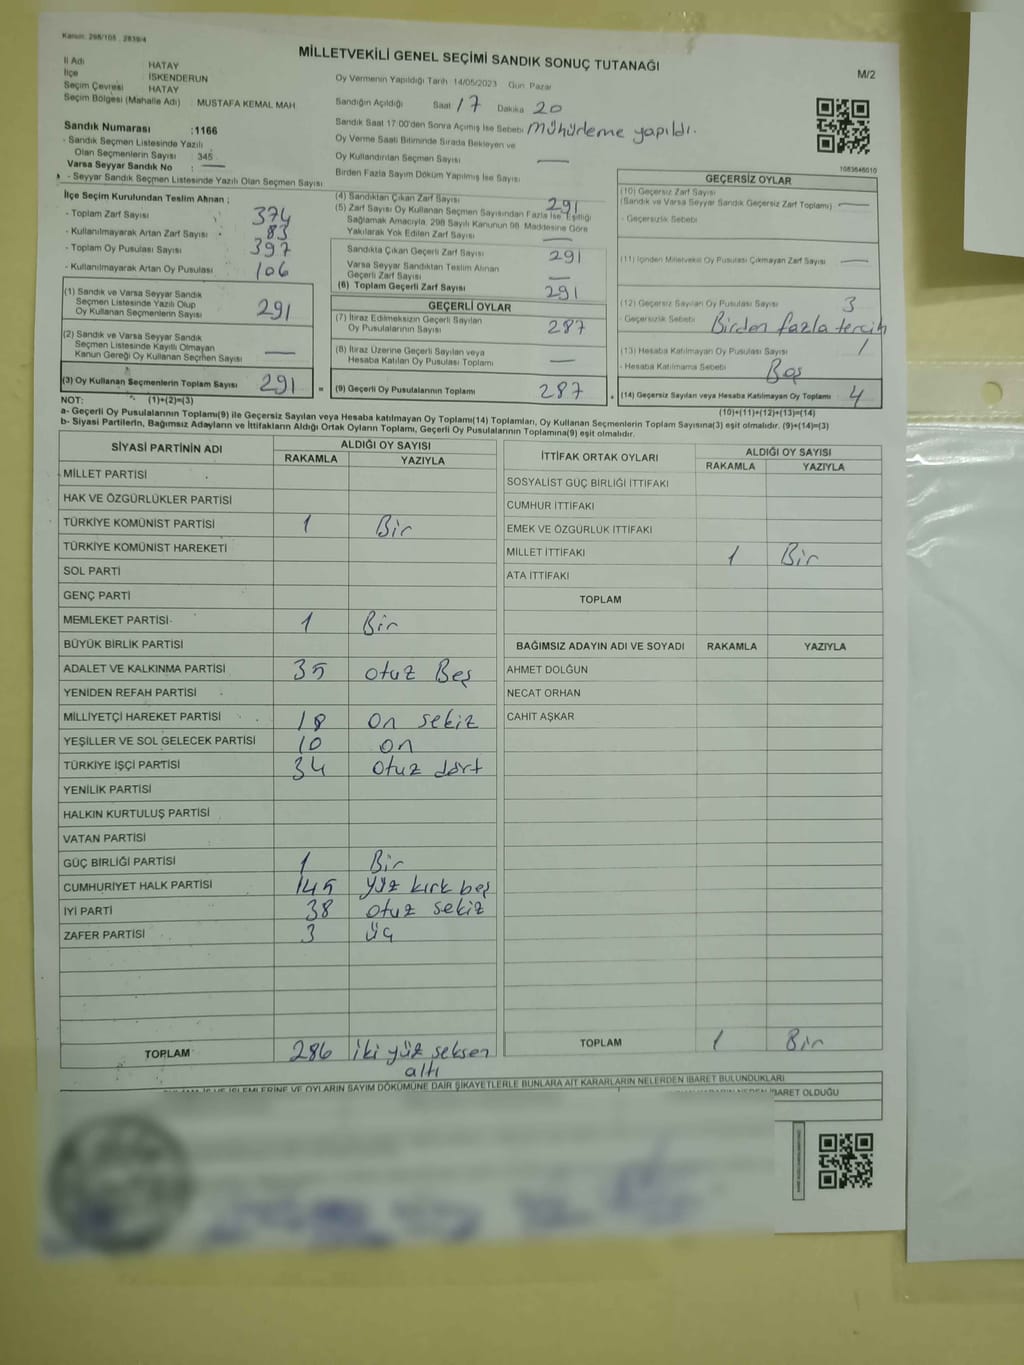 Kanun: 298/105 , 2839/4
MİLLETVEKİLİ GENEL SEÇİMİ SANDIK SONUÇ TUTANAĞI
M/2
İl Adı HATAY
İlçe İSKENDERUN
Seçim Çevresi HATAY
Seçim Bölgesi (Mahalle Adı) MUSTAFA KEMAL MAH
Sandık Numarası :1166
- Sandık Seçmen Listesinde Yazılı
Olan Seçmenlerin Sayısı : 345
Varsa Seyyar Sandık No : —
- Seyyar Sandık Seçmen Listesinde Yazılı Olan Seçmen Sayısı
Oy Vermenin Yapıldığı Tarih 14/05/2023 Gün Pazar
Sandığın Açıldığı Saat 17 Dakika 20
Sandık Saat 17:00'den Sonra Açılmış İse Sebebi Mühürleme yapıldı.
Oy Verme Saati Bitiminde Sırada Bekleyen ve
Oy Kullandırılan Seçmen Sayısı —
Birden Fazla Sayım Döküm Yapılmış İse Sayısı
1083646010
İlçe Seçim Kurulundan Teslim Alınan ;
- Toplam Zarf Sayısı 374
- Kullanılmayarak Artan Zarf Sayısı 83
- Toplam Oy Pusulası Sayısı 397
- Kullanılmayarak Artan Oy Pusulası 106
(1) Sandık ve Varsa Seyyar Sandık
Seçmen Listesinde Yazılı Olup
Oy Kullanan Seçmenlerin Sayısı 291
(2) Sandık ve Varsa Seyyar Sandık
Seçmen Listesinde Kayıtlı Olmayan
Kanun Gereği Oy Kullanan Seçmen Sayısı —
(3) Oy Kullanan Seçmenlerin Toplam Sayısı 291 =
(4) Sandıktan Çıkan Zarf Sayısı 291
(5) Zarf Sayısı Oy Kullanan Seçmen Sayısından Fazla İse ,Eşitliği
Sağlamak Amacıyla, 298 Sayılı Kanunun 98. Maddesine Göre
Yakılarak Yok Edilen Zarf Sayısı —
Sandıkta Çıkan Geçerli Zarf Sayısı 291
Varsa Seyyar Sandıktan Teslim Alınan
Geçerli Zarf Sayısı —
(6) Toplam Geçerli Zarf Sayısı 291
GEÇERLİ OYLAR
(7) İtiraz Edilmeksizin Geçerli Sayılan
Oy Pusulalarının Sayısı 287
(8) İtiraz Üzerine Geçerli Sayılan veya
Hesaba Katılan Oy Pusulası Toplamı —
(9) Geçerli Oy Pusulalarının Toplamı 287 +
GEÇERSİZ OYLAR
(10) Geçersiz Zarf Sayısı
(Sandık ve Varsa Seyyar Sandık Geçersiz Zarf Toplamı) —
- Geçersizlik Sebebi
(11) İçinden Milletvekili Oy Pusulası Çıkmayan Zarf Sayısı —
(12) Geçersiz Sayılan Oy Pusulası Sayısı 3
- Geçersizlik Sebebi Birden fazla tercih
(13) Hesaba Katılmayan Oy Pusulası Sayısı 1
- Hesaba Katılmama Sebebi Boş
(14) Geçersiz Sayılan veya Hesaba Katılmayan Oy Toplamı 4
NOT: (1)+(2)=(3)
(10)+(11)+(12)+(13)=(14)
a- Geçerli Oy Pusulalarının Toplamı(9) ile Geçersiz Sayılan veya Hesaba katılmayan Oy Toplamı(14) Toplamları, Oy Kullanan Seçmenlerin Toplam Sayısına(3) eşit olmalıdır. (9)+(14)=(3)
b- Siyasi Partilerin, Bağımsız Adayların ve İttifakların Aldığı Ortak Oyların Toplamı, Geçerli Oy Pusulalarının Toplamına(9) eşit olmalıdır.
SİYASİ PARTİNİN ADI ALDIĞI OY SAYISI
RAKAMLA YAZIYLA
MİLLET PARTİSİ
HAK VE ÖZGÜRLÜKLER PARTİSİ
TÜRKİYE KOMÜNİST PARTİSİ 1 Bir
TÜRKİYE KOMÜNİST HAREKETİ
SOL PARTİ
GENÇ PARTİ
MEMLEKET PARTİSİ 1 Bir
BÜYÜK BİRLİK PARTİSİ
ADALET VE KALKINMA PARTİSİ 35 otuz Beş
YENİDEN REFAH PARTİSİ
MİLLİYETÇİ HAREKET PARTİSİ 18 on sekiz
YEŞİLLER VE SOL GELECEK PARTİSİ 10 on
TÜRKİYE İŞÇİ PARTİSİ 34 otuz dört
YENİLİK PARTİSİ
HALKIN KURTULUŞ PARTİSİ
VATAN PARTİSİ
GÜÇ BİRLİĞİ PARTİSİ 1 Bir
CUMHURİYET HALK PARTİSİ 145 yüz kırk beş
İYİ PARTİ 38 otuz sekiz
ZAFER PARTİSİ 3 üç
TOPLAM 286 iki yüz seksen
altı
İTTİFAK ORTAK OYLARI ALDIĞI OY SAYISI
RAKAMLA YAZIYLA
SOSYALİST GÜÇ BİRLİĞİ İTTİFAKI
CUMHUR İTTİFAKI
EMEK VE ÖZGÜRLÜK İTTİFAKI
MİLLET İTTİFAKI 1 Bir
ATA İTTİFAKI
TOPLAM
BAĞIMSIZ ADAYIN ADI VE SOYADI RAKAMLA YAZIYLA
AHMET DOLĞUN
NECAT ORHAN
CAHİT AŞKAR
TOPLAM 1 Bir
İŞLEMLERİNE VE OYLARIN SAYIM DÖKÜMÜNE DAİR ŞİKAYETLERLE BUNLARA AİT KARARLARIN NELERDEN İBARET BULUNDUKLARI
İBARET OLDUĞU